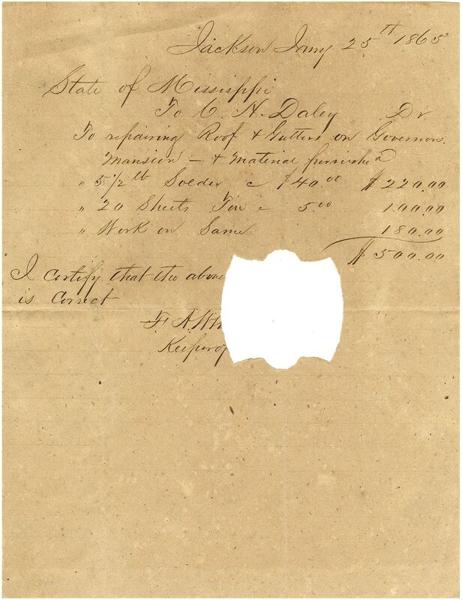 Jackson Jany 25th 1865
State of Mississippi
To C. N. Daley Dr
To repairing Roof & Gutters on Governors
Mansion – & Material furnished
" 5 1/2 lb Soeder c $40.00 $220.00
" 20 Sheets Tin c 5.00 100.00
" Work on Same 180.00
$500.00
I certify that the above
is Correct
Keeper of